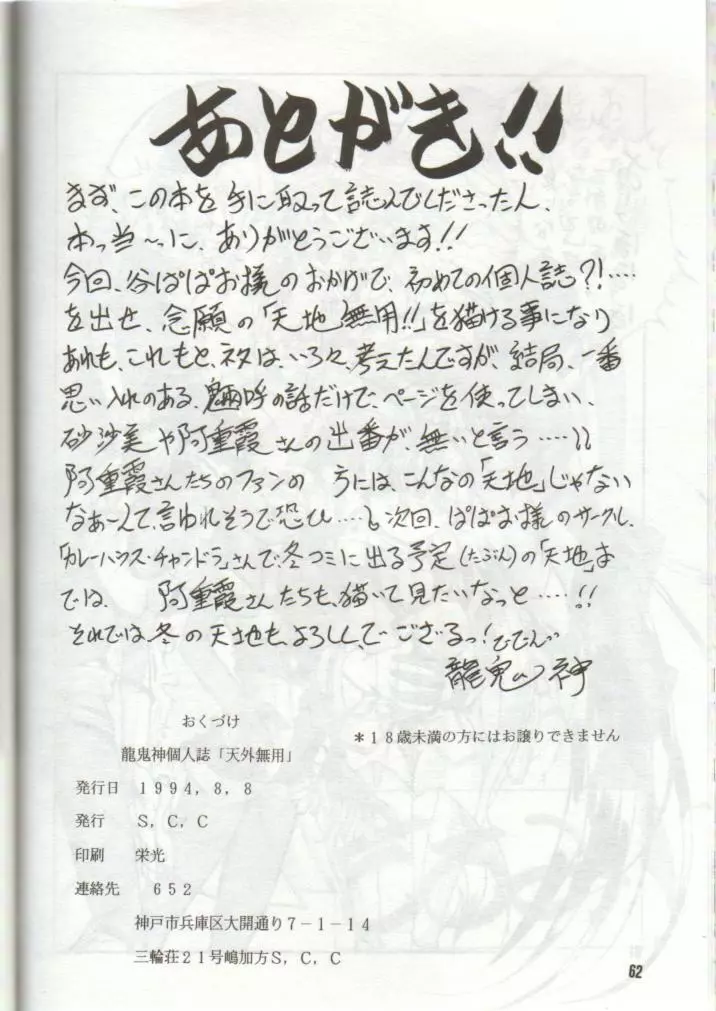 あとがき!!
まず、この本を手に取って読んでくださった人、
本っ当〜っに、ありがとうございます!!
今回、谷ぱぱお様のおかげで、初めての個人誌?!‥‥
を出せ、念願の「天地無用!!」を描ける事になり
あれも、これもと、ネタは、いろいろ、考えたんですが、結局、一番
思い入れのある、魎呼の話だけで、ページを使ってしまい、
砂沙美や阿重霞さんの出番が、無いと言う‥‥
阿重霞さんたちのファンの 方には、こんなの「天地」じゃない
なぁーんて、言われそうで恐い‥‥ 次回、ぱぱお様のサークル、
「カレーハウス・チャンドラ」さんで、冬コミに出る予定(たぶん)の「天地」本
では、 阿重霞さんたちも、描いて見たいなっと‥‥!!
それでは冬の天地も、よろしく、でござるっ!
龍鬼神
おくづけ
*18歳未満の方にはお譲りできません
龍鬼神個人誌「天外無用」
発行日 1994,8,8
発行 S,C,C
印刷 栄光
連絡先 652
神戸市兵庫区大開通り7-1-14
三輪荘21号嶋加方S,C,C
62